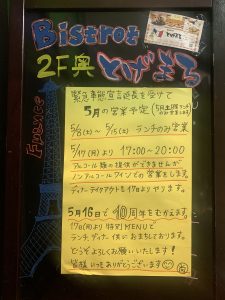 Bistrot
2F奥 とげまる
France
緊急事態宣言延長を受けて
5月の営業予定
5/8(土)~5/15(土) ランチのみ営業
5/17(月)より 17:00~20:00
アルコール類の提供ができませんが
ノンアルコールワインでの営業をします。
ディナーテイクアウトも17日よりやります。
5月16日で10周年をむかえます。
17日(月)より特別MENUで
ランチ、ディナー供におまちしております。
どうぞよろしくお願いいたします!
皆様いつもありがとうございます